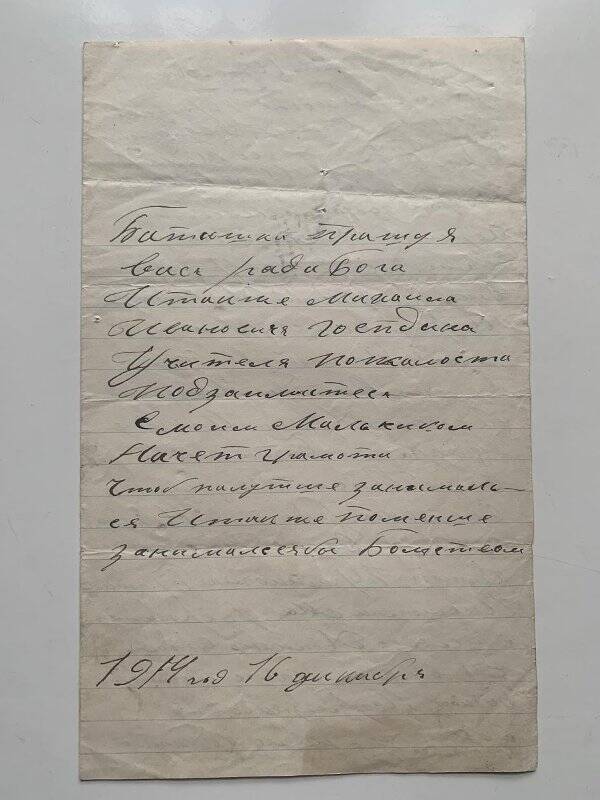 Батюшка прашу я
васъ ради Бога
Итакже Михаила
Ивановича господина
Учителя пожалоста
Подзаимитесь
Смоим Мальчиком
Начет грамоты
чтоб палутше занимал-
ся Итакже поменше
занималсябы Балаством
1914 год 16 дикабря